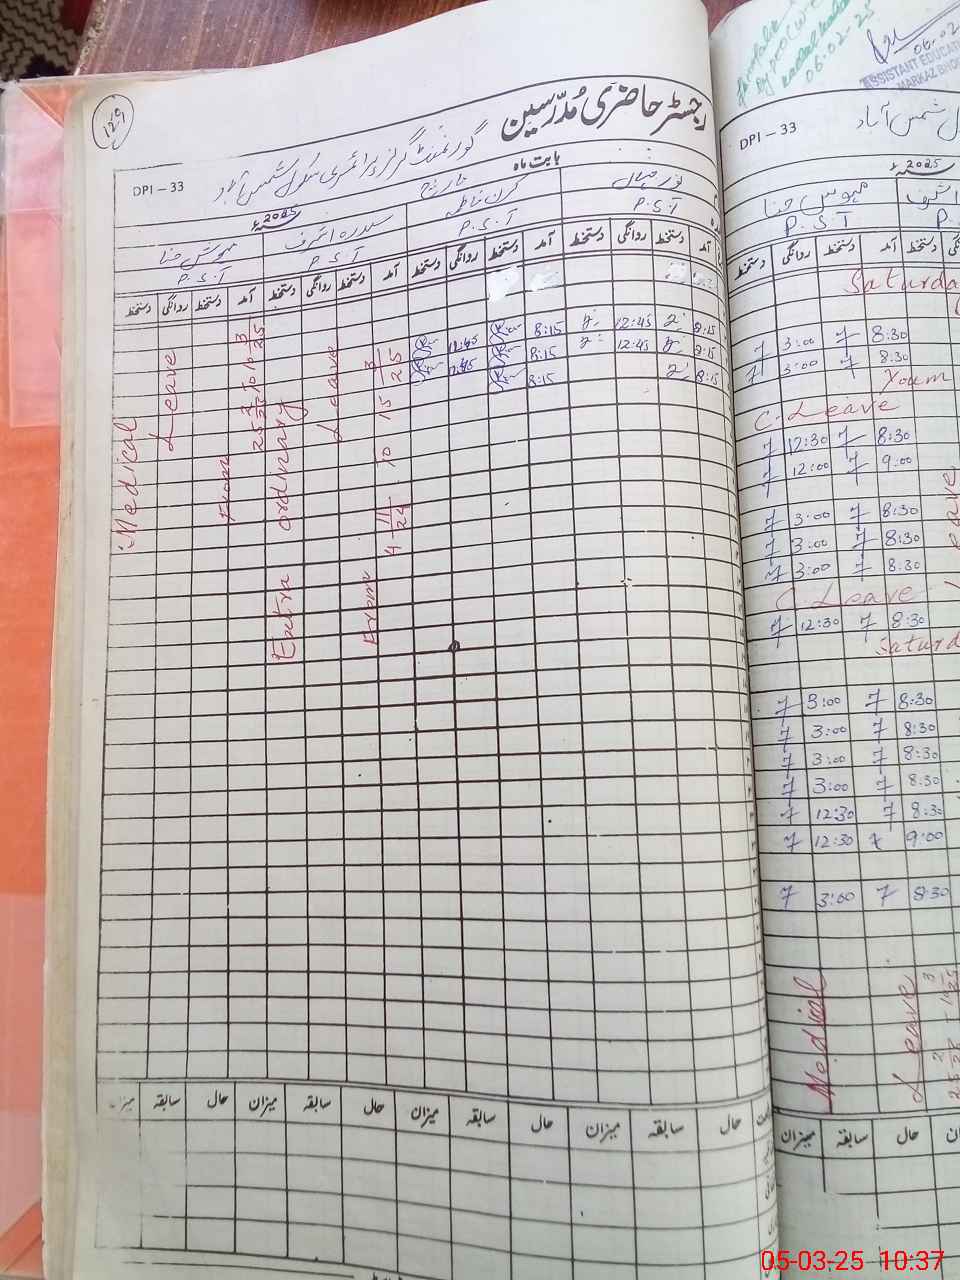 129
رجسٹر حاضری مُدرّسین
DPI – 33
گورنمنٹ گرلز پرائمری سکول شمس آباد
بابت ماہ
مارچ
2025ء
نور جہاں
کرن فاطمہ
سدرہ اشرف
مہوش حنا
P.S.T
P.S.T
P.S.T
P.S.T
آمد دستخط روانگی دستخط آمد دستخط روانگی دستخط آمد دستخط روانگی دستخط آمد دستخط روانگی دستخط
8:15 12:45 8:15 12:45
8:15 12:45 8:15 12:45
8:15 8:15
Extra ordnary Leave
From 4 11/24 To 15 3/25
Medical Leave
From 25 2/25 To 10 3/25
حال سابقہ میزان حال سابقہ میزان حال سابقہ میزان حال سابقہ میزان
06.02.25
06.02
ASSISTANT EDUCATI
MARKAZ BHOK
DPI – 33
شمس آباد
2025ء
اشرف
مہوش حنا
P.S.T
آمد دستخط روانگی دستخط
Saturda
8:30 7 3:00 7
8:30 7 3:00 7
Youm
C. Leave
8:30 7 12:30 7
9:00 7 12:00 7
8:30 7 3:00 7
8:30 7 3:00 7
8:30 7 3:00 7
C. Leave
8:30 7 12:30 7
Saturd
8:30 7 3:00 7
8:30 7 3:00 7
8:30 7 3:00 7
8:30 7 3:00 7
8:30 7 12:30 7
9:00 7 12:30 7
8:30 7 3:00 7
Medical
Leave
حال سابقہ میزان
05-03-25 10:37